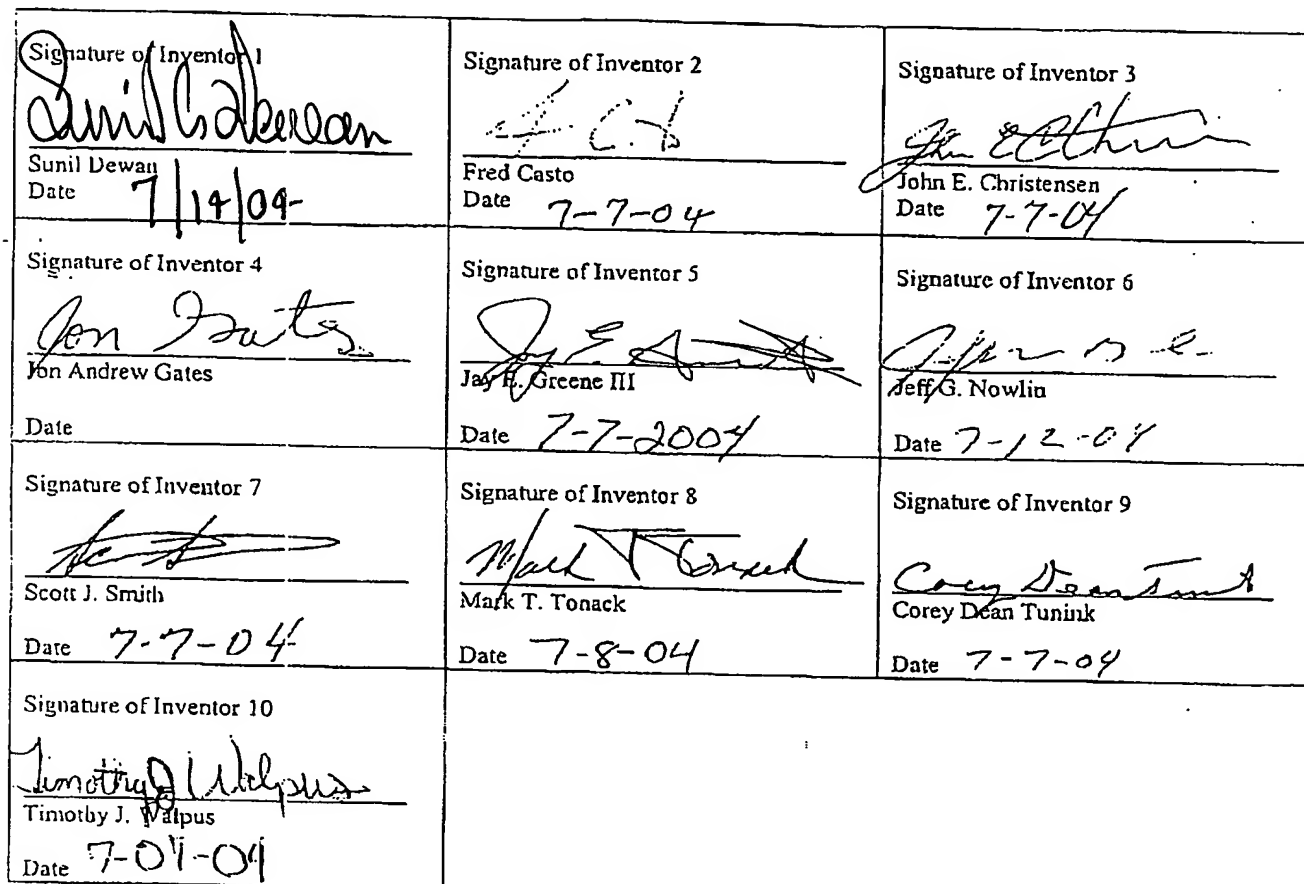 Signature of Inventor 1
Sunil Dewan
Sunil Dewan
Date 7/14/04
Signature of Inventor 2
Fred Casto
Date 7-7-04
Signature of Inventor 3
John E Christensen
John E. Christensen
Date 7-7-04
Signature of Inventor 4
Jon Gates
Jon Andrew Gates
Date
Signature of Inventor 5
Jay E.
Jay E. Greene III
Date 7-7-2004
Signature of Inventor 6
Jeff G. Nowlin
Date 7-12-04
Signature of Inventor 7
Scott J. Smith
Date 7-7-04
Signature of Inventor 8
Mark T Tonack
Mark T. Tonack
Date 7-8-04
Signature of Inventor 9
Corey Dean Tunink
Corey Dean Tunink
Date 7-7-04
Signature of Inventor 10
Timothy J Walpus
Timothy J. Walpus
Date